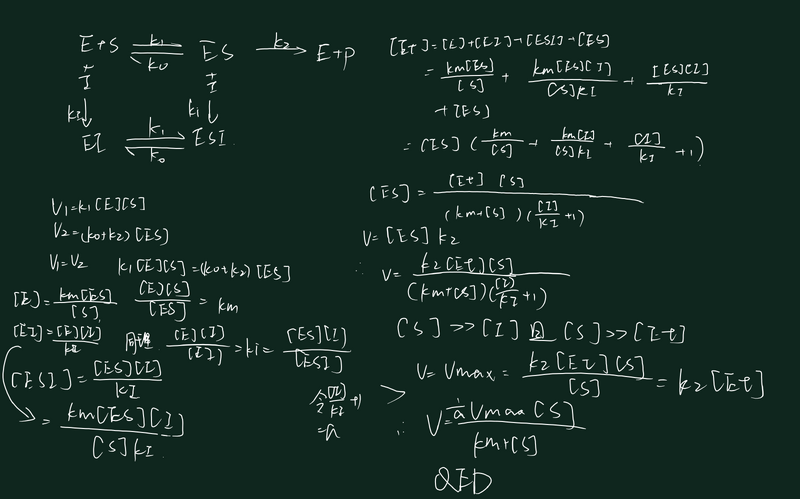 E+S ⇌ ES → E+P
k₁ k₀ k₂
+ +
I I
kI↓ ki↓
EI ⇌ ESI
k₁ k₀
V₁=k₁[E][S]
V₂=(k₀+k₂)[ES]
V₁=V₂ k₁[E][S]=(k₀+k₂)[ES]
[E]=km[ES]/[S] [E][S]/[ES] = km
[EI]=[E][I]/kI 同理 [E][I]/[EI] =ki= [ES][I]/[ESI]
[ESI]=[ES][I]/kI
= km[ES][I]/[S]kI
令[I]/kI +1
=a
[Et]=[E]+[EI]+[ESI]+[ES]
= km[ES]/[S] + km[ES][I]/[S]kI + [ES][I]/kI
+[ES]
=[ES](km/[S] + km[I]/[S]kI + [I]/kI +1)
[ES] = [Et][S]/(km+[S])([I]/kI +1)
V=[ES]k₂
∴ V= k₂[Et][S]/(km+[S])([I]/kI +1)
[S]>>[I] 且 [S]>>[Et]
V=Vmax= k₂[Et][S]/[S] =k₂[Et]
∴ V= 1/a Vmax[S]/km+[S]
QED